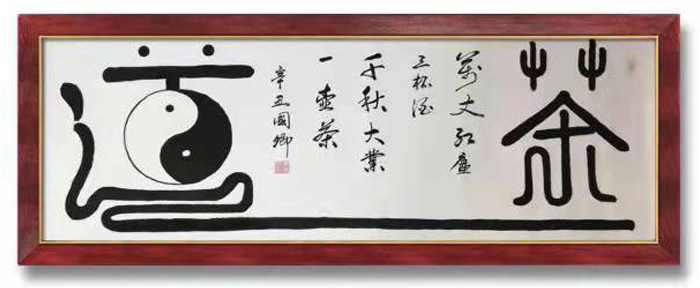 茶
萬丈红塵
三杯酒
千秋大業
一壺茶
辛丑國卿
道